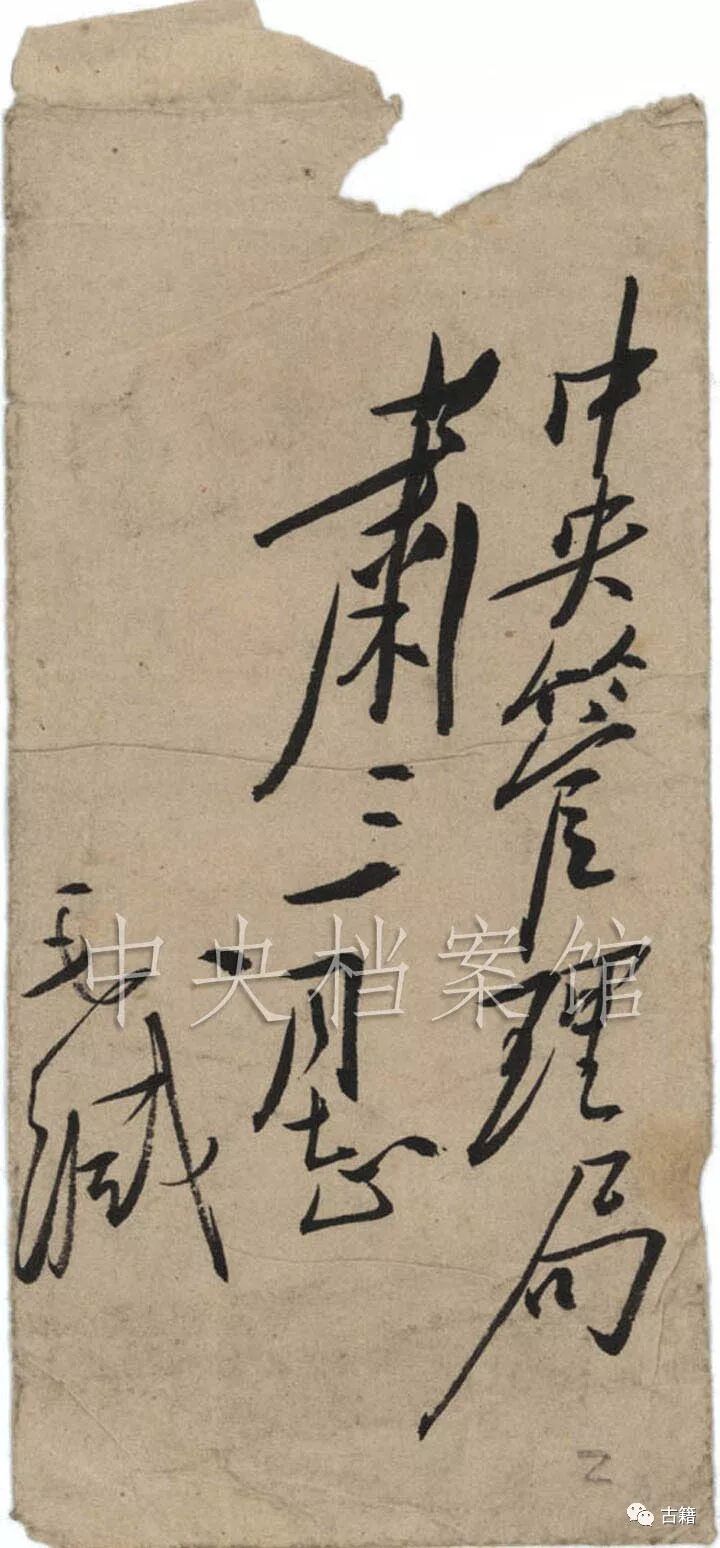 中央管理局
萧三同志
毛缄
中央档案馆
乙
古籍